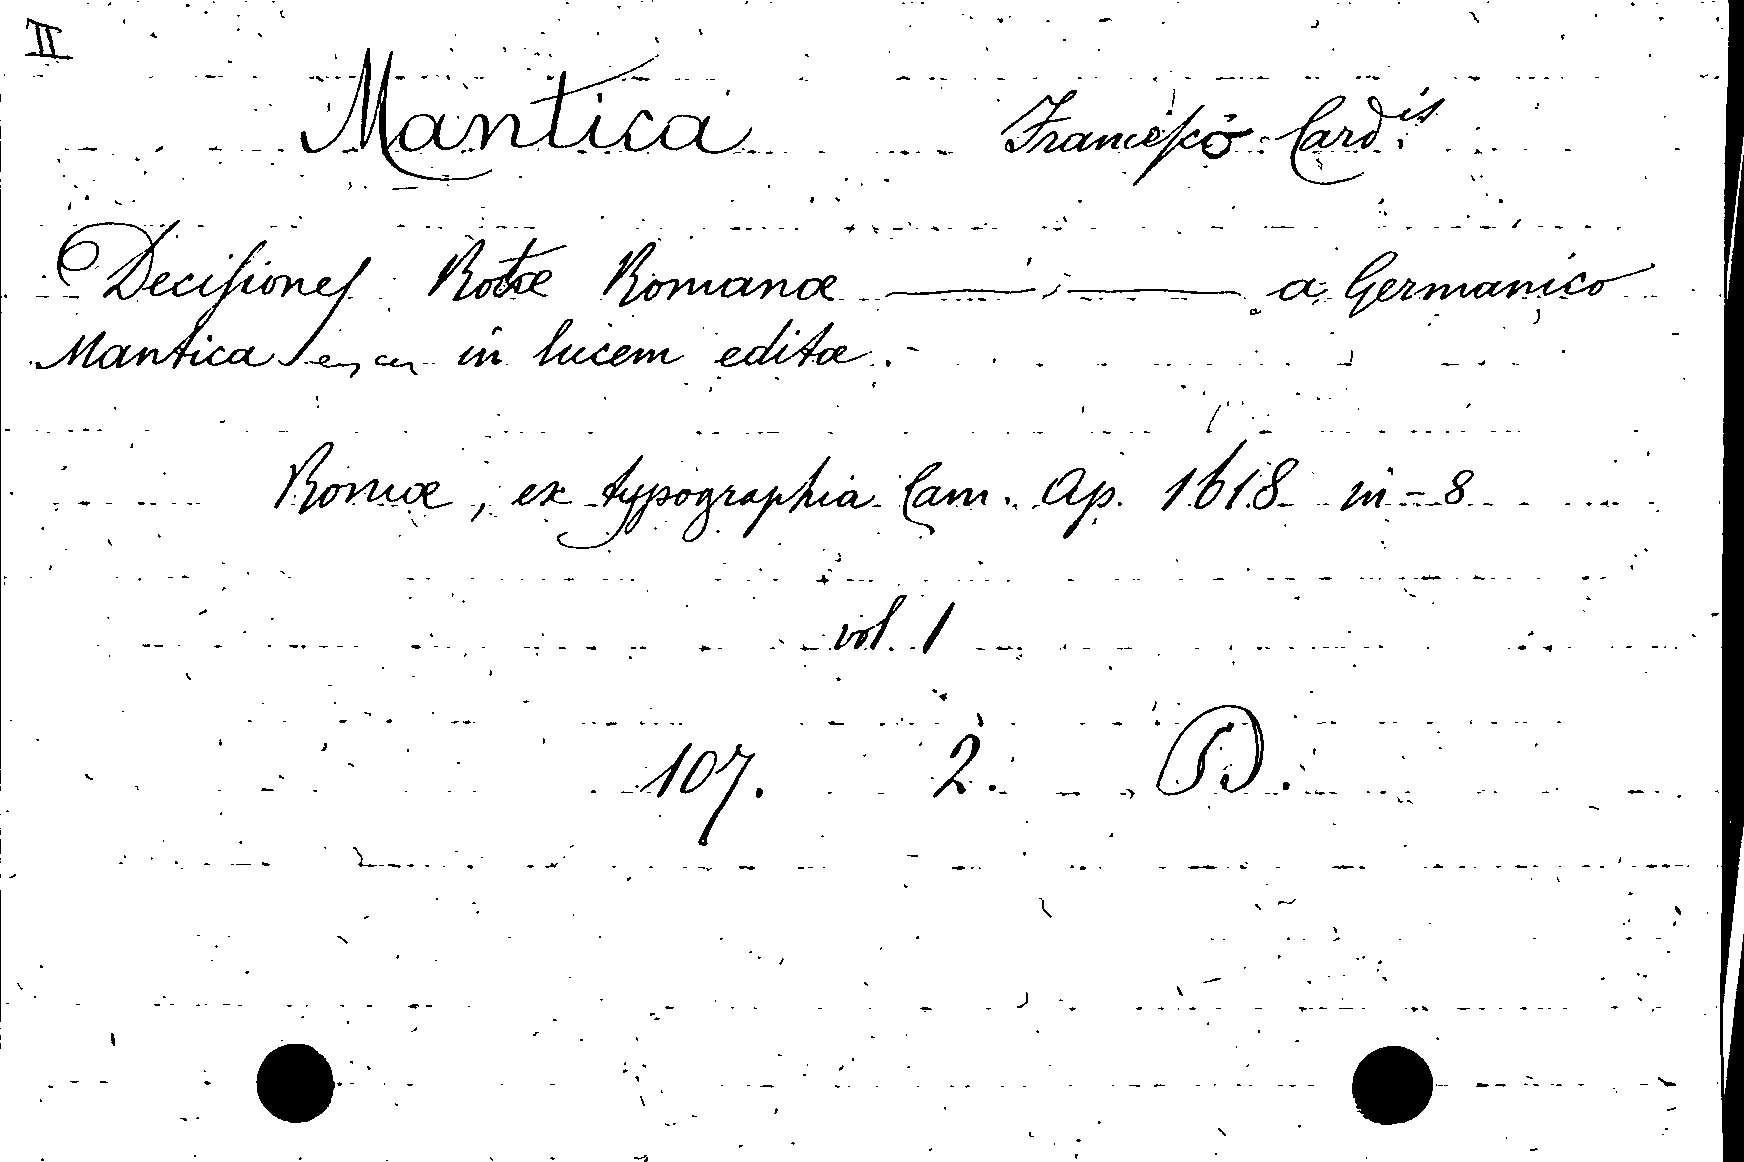 II
Mantica Francisco Card.is
Decisiones Rotæ Romanæ —— , —— a Germanico
Mantica in lucem editæ.
Romæ, ex typographia Cam. Ap. 1618 in-8
vol. 1
107. 2. D.